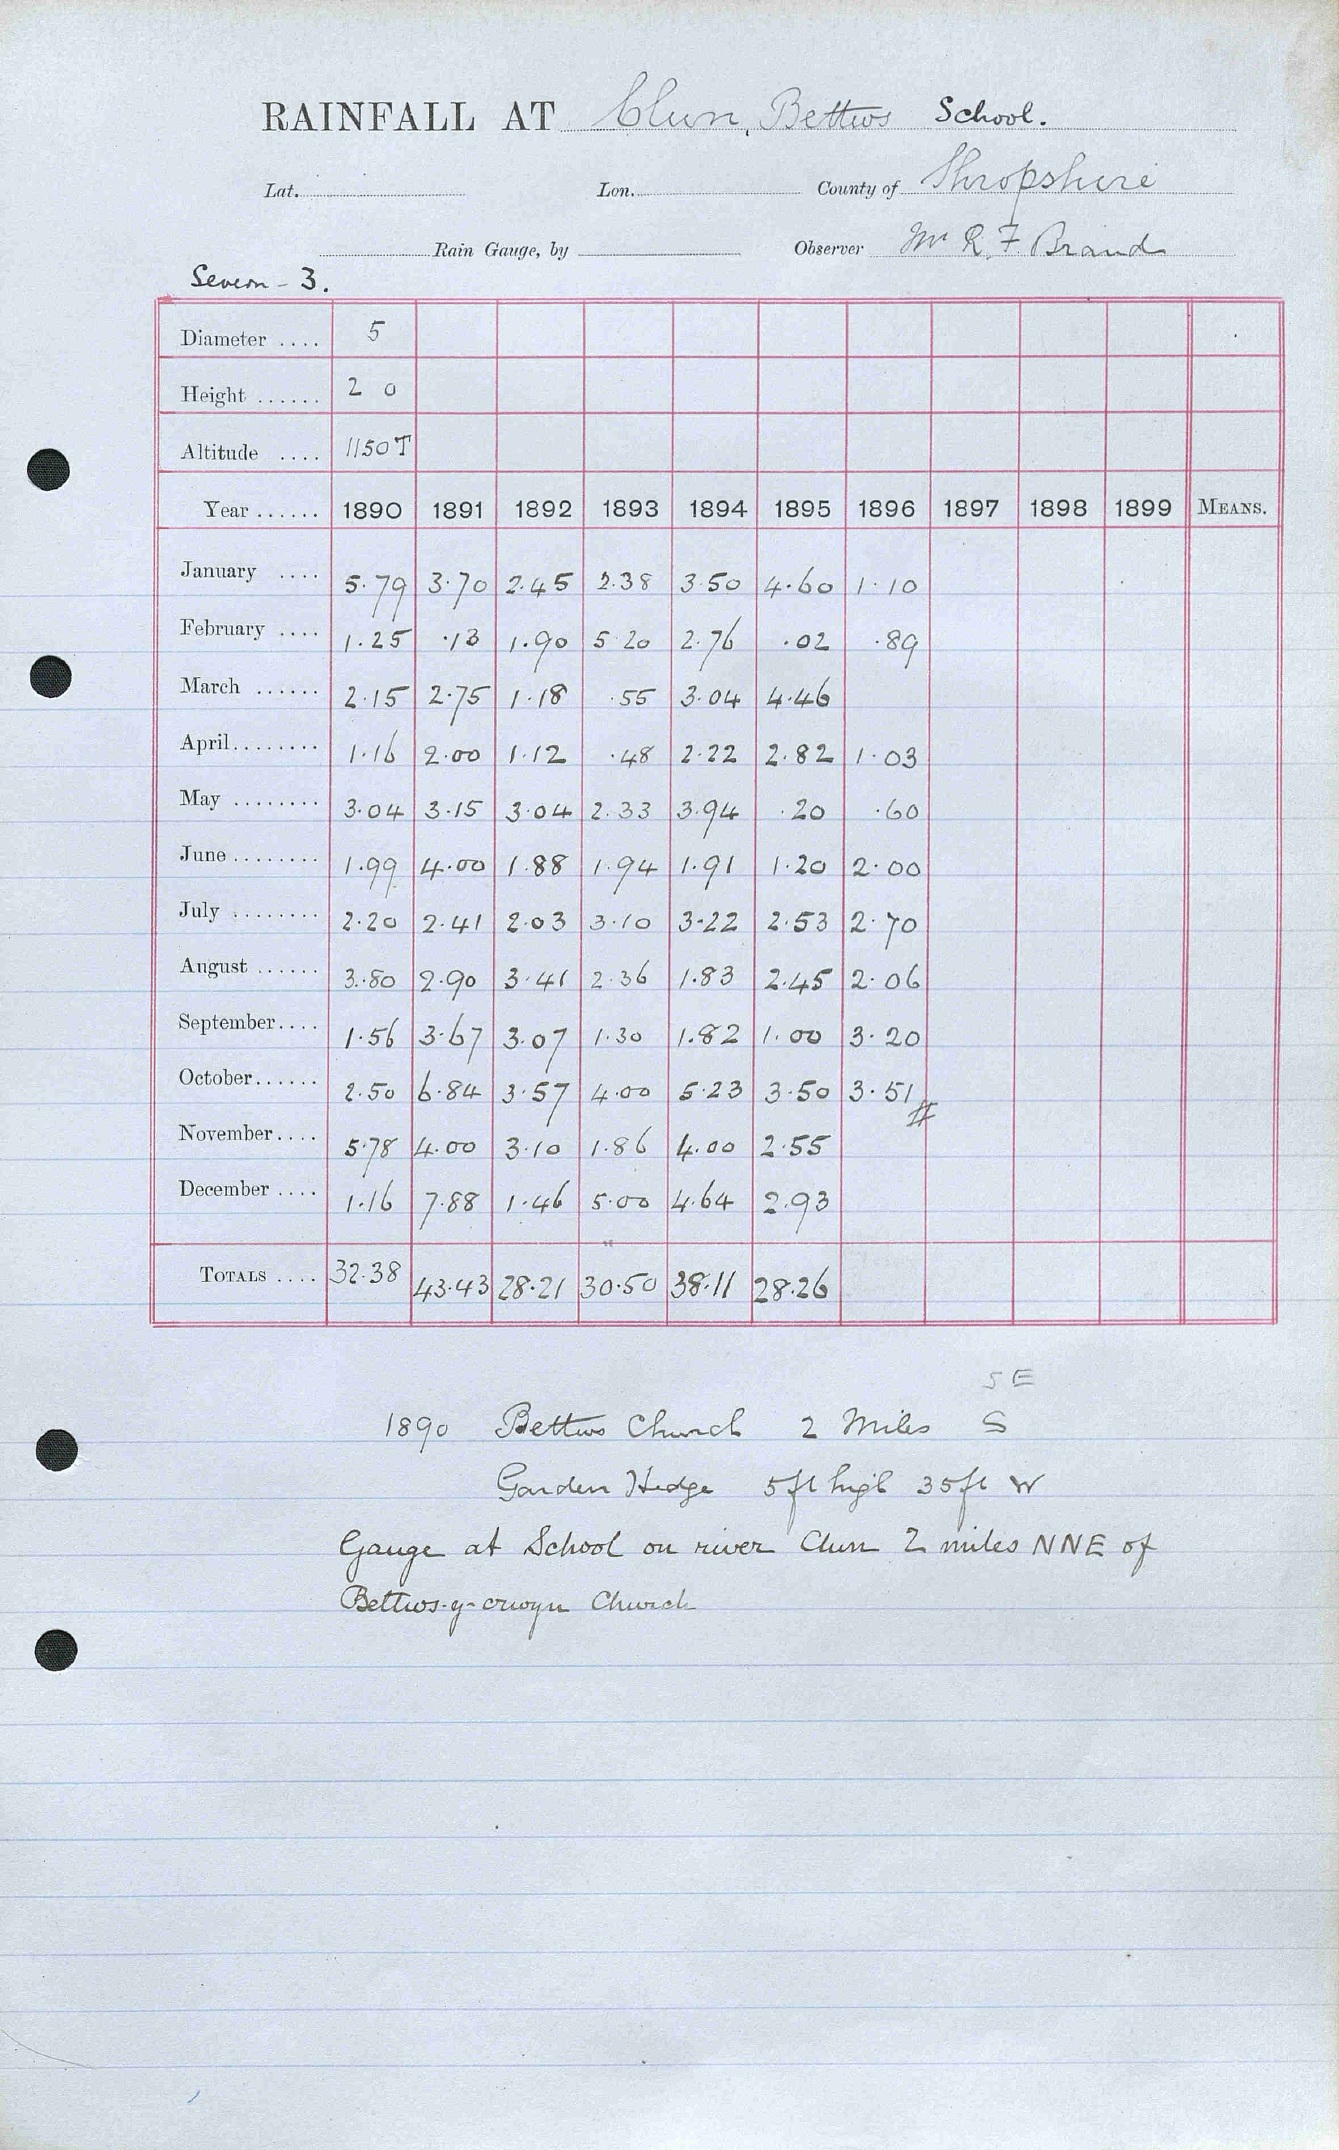 RAINFALL AT Clun, Bettws School.
Lat. Lon. County of Shropshire
Rain Gauge, by Observer Mr R. F. Brand
Severn - 3.
Diameter .... 5
Height ...... 2 0
Altitude .... 1150T
Year ...... 1890 1891 1892 1893 1894 1895 1896 1897 1898 1899 MEANS.
January .... 5.79 3.70 2.45 2.38 3.50 4.60 1.10
February .... 1.25 .13 1.90 5.20 2.76 .02 .89
March ...... 2.15 2.75 1.18 .55 3.04 4.46
April........ 1.16 2.00 1.12 .48 2.22 2.82 1.03
May ........ 3.04 3.15 3.04 2.33 3.94 .20 .60
June ........ 1.99 4.00 1.88 1.94 1.91 1.20 2.00
July ........ 2.20 2.41 2.03 3.10 3.22 2.53 2.70
August ...... 3.80 2.90 3.41 2.36 1.83 2.45 2.06
September.... 1.56 3.67 3.07 1.30 1.82 1.00 3.20
October...... 2.50 6.84 3.57 4.00 5.23 3.50 3.51 #
November.... 5.78 4.00 3.10 1.86 4.00 2.55
December .... 1.16 7.88 1.46 5.00 4.64 2.93
TOTALS .... 32.38 43.43 28.21 30.50 38.11 28.26
SE
1890 Bettws Church 2 Miles S
Garden Hedge 5ft high 35ft W
Gauge at School on river Clun 2 miles NNE of
Bettws-y-crwyn Church